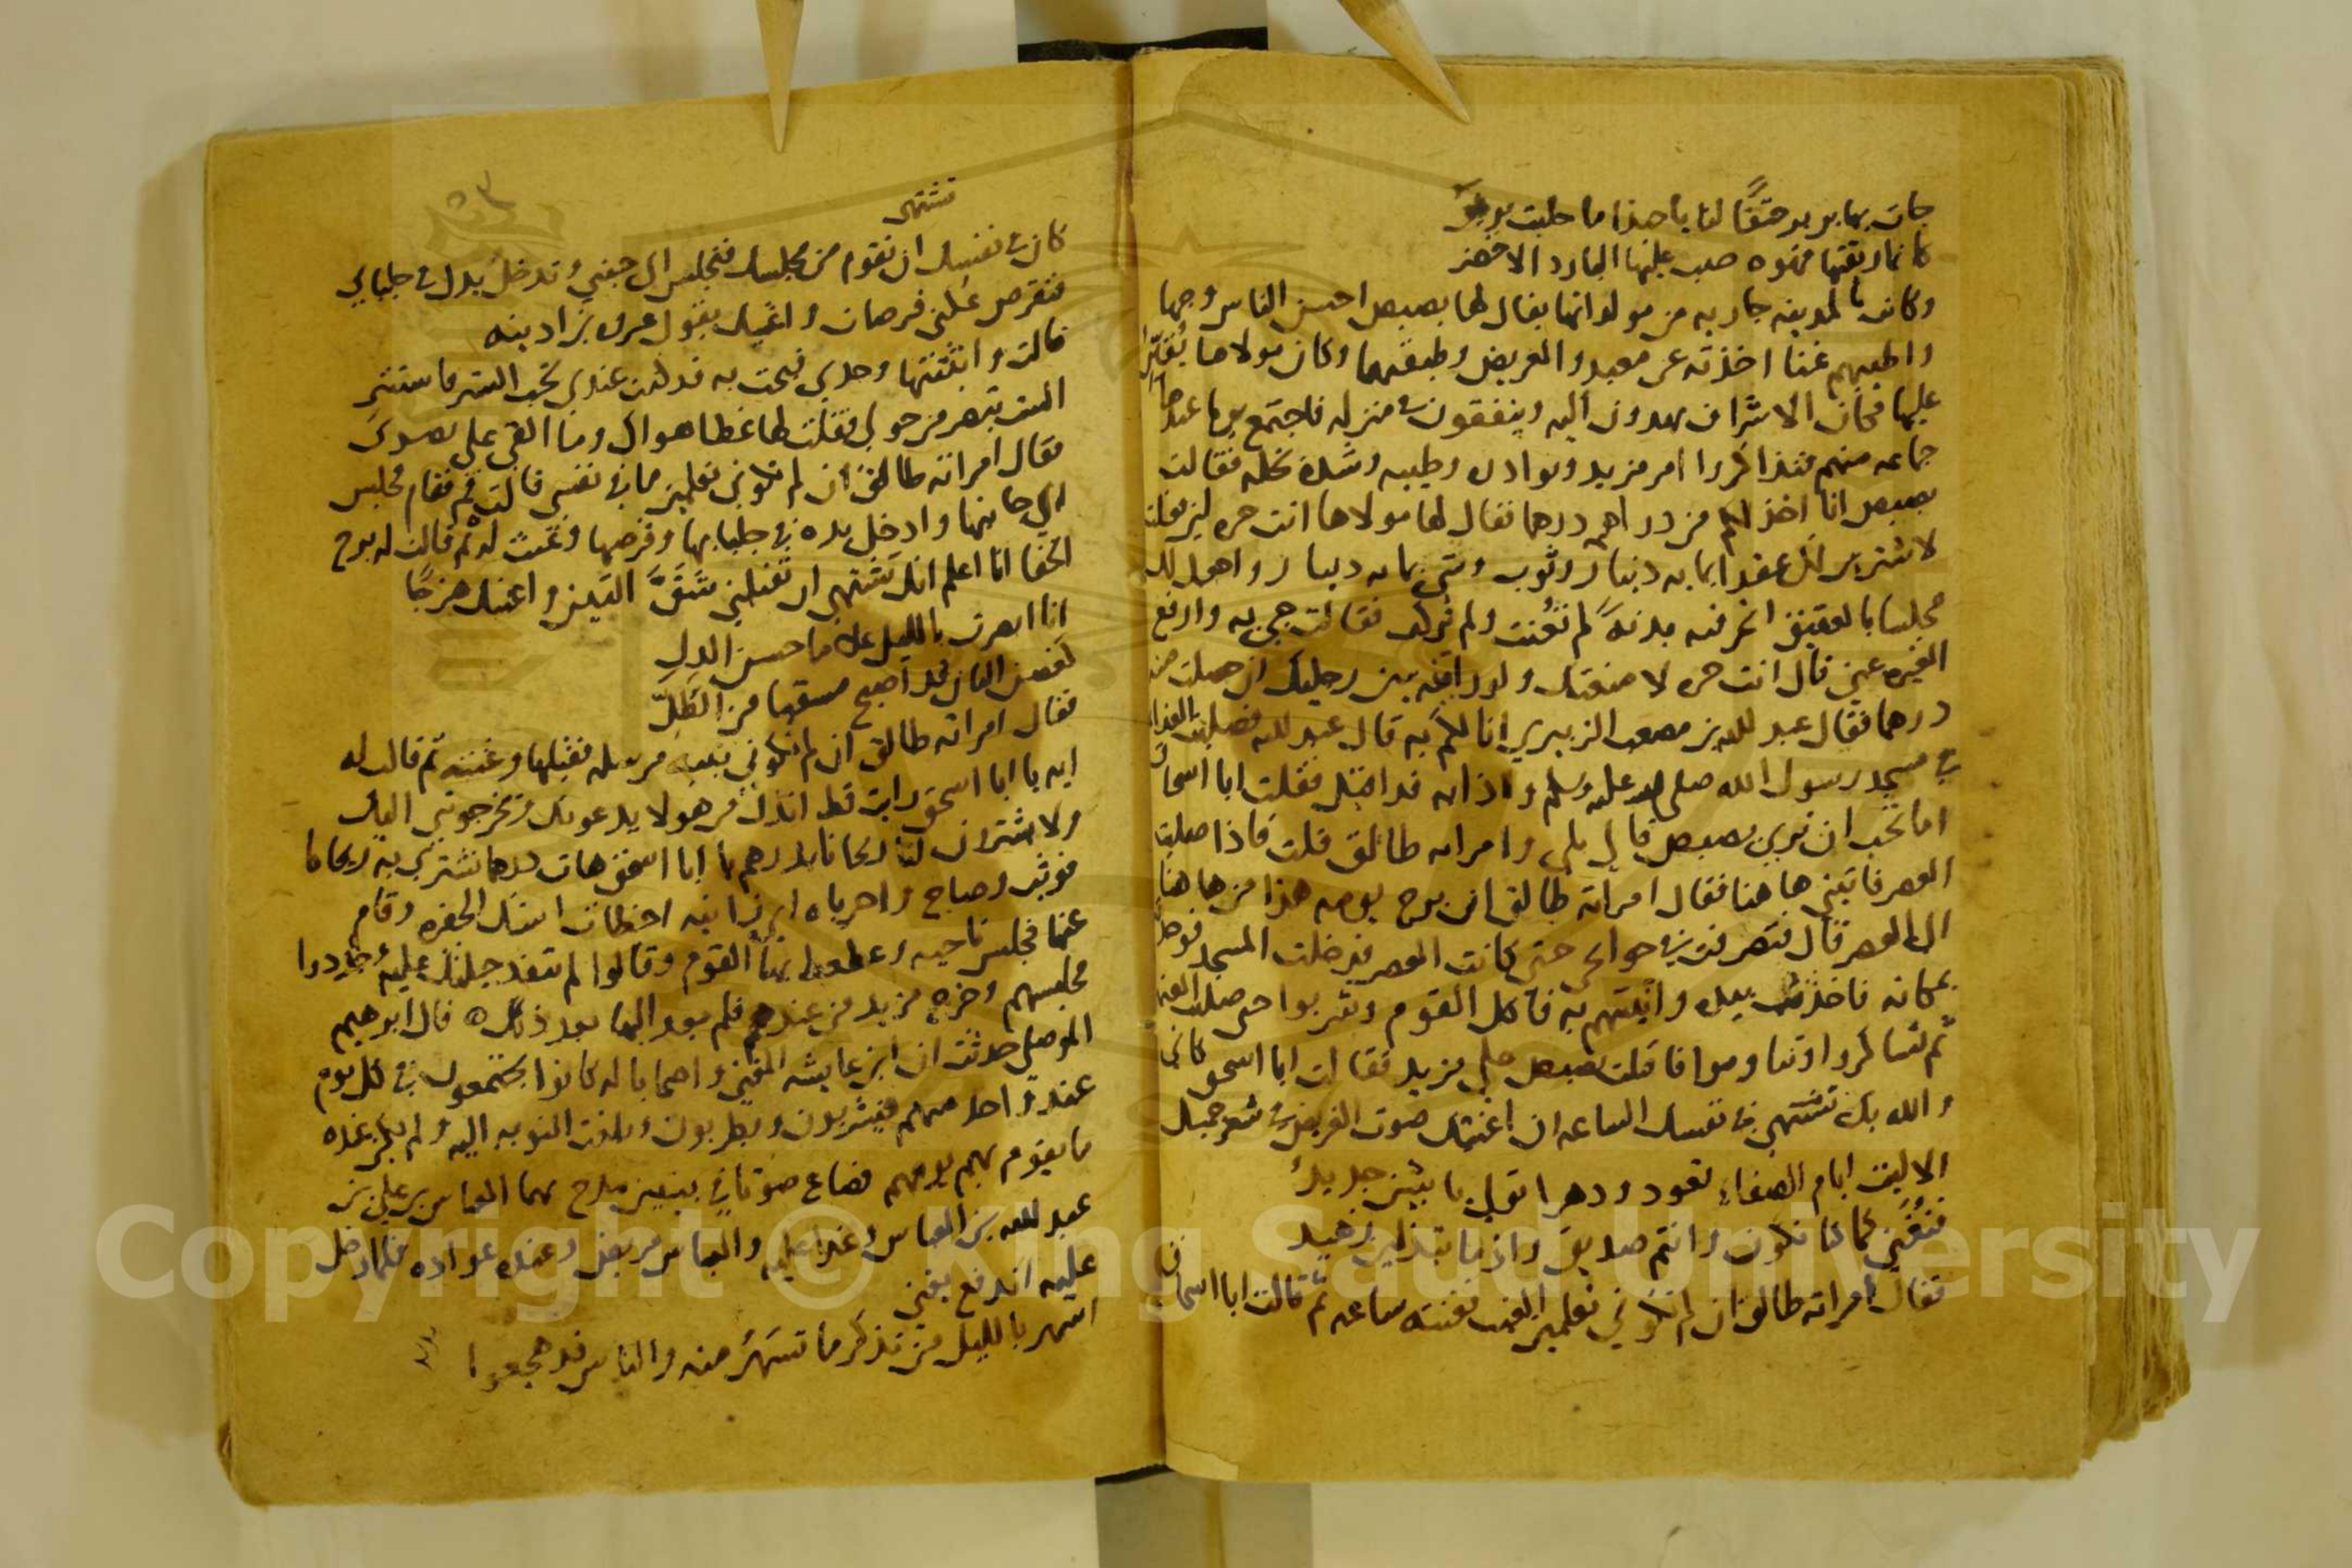 كانما ريقتها قهوه صب عليها البارد الاخضر
وكانت بالمدينه جاريه من مولداتها يقال لها بصبص احسن الناس وجها
واطيبهم غنا اخذته عن معبد والغريض وطبقتهما وكان مولاها
عليها فكان الاشراف يهدون اليه وينفقون في منزله فاجتمع يوما عندها
جماعه منهم فتذاكروا امر مزيد ونوادره وطيبه وشدة بخله فقالت
بصبص انا اخذ لكم من دراهمه درهما فقال لها مولاها انت حره لئن فعلت
لاشترين لك عقدا بمايه دينار وثوب وشي بمايه دينار واجعل لك
مجلسا بالعقيق انحر فيه بدنة لم تقتب ولم تركب فقالت جي به وارفع
الغيره عني قال انت حره لا منعتك ولو رافع بين رجليك ان حصلت منه
درهما فقال عبد الله بن مصعب الزبيري انا لكم به قال عبد الله فصليت الغداة
في مسجد رسول الله صلى الله عليه وسلم واذا به قد اقبل فقلت ابا اسحاق
اما تحب ان ترى بصبص قال بلى وامراته طالق قلت فاذا صليت
العصر فاتني هاهنا فقال امراته طالق ان برح يومه هذا من هاهنا
الى العصر قال فتصرفت في حوائجي حتى كانت العصر فدخلت المسجد فوجدته
بمكانه فاخذت بيده واتيتهم به فاكل القوم وشربوا حتى صلت العتمة
ثم تساكروا وتناوموا فاقبلت بصبص على مزيد فقالت ابا اسحق كاني
والله بك تشتهي في نفسك الساعه ان اغنيك صوت الغريض في شعر جميل
الا ليت ايام الصفاء تعود ودهرا تولى يا بثين جديد
فنغنى كما كنا نكون وانتم صديق واذ ما تبذلين زهيد
فقال امراته طالق ان لم تكوني تعلمين الغيب فغنته ساعه ثم قالت ابا اسحاق
تشتهي
كان في نفسك ان تقوم من مجلسك فتجلس الى جنبي وتدخل يدك في جلبابي
فتقرص عكني قرصات واغنيك بقول عمرو بن اذينه
قالت وابثثتها وجدي فبحت به قد كنت عندي تحب الستر فاستتر
الست تبصر من حولي فقلت لها غطا هواك وما القى على بصري
فقال امراته طالق ان لم تكوني تعلمين ما في نفسي قالت قم فقام فجلس
الى جانبها وادخل يده في جلبابها وقرصها وغنت له ثم قالت له برح
الخفا انا اعلم انك تشتهي ان تقبلني شق التين واغنيك هزجا
انا ابصرت بالليل غلاما حسن الدل
كغصن البان قد اصبح مسقيا من الطل
فقال امراته طالق ان لم تكوني نبيه مرسله فقبلها وغنته ثم قالت له
ايه يا ابا اسحق رايت قط انذل من هولا يدعونك ويخرجونني اليك
ولا يشترون لنا ريحانا بدرهم يا ابا اسحق هات درهما نشتري به ريحانا
فوثب وصاح واحرباه اي زانيه اخطات استك الحفره وقام
عنها فجلس ناحيه وعطعط بها القوم وقالوا لم تنفذ حيلتك عليه وجددوا
مجلسهم وخرج مزيد من عندهم فلم يعد اليها بعد ذلك ه قال ابرهيم
الموصلي حدثت ان ابن عايشه المغني واصحابا له كانوا يجتمعون في كل يوم
عند واحد منهم فيشربون ويطربون وبلغت النوبه اليه ولم يكن عنده
ما يقوم بهم يومهم فصاغ صوتا في بيتين مدح بهما العباس بن علي بن
عبد الله بن العباس وغدا عليه والعباس مريض وعنده عواده فلما دخل
عليه اندفع يغني
اتسهر بالليل من تذكر ما تسهر منه والناس قد هجعوا